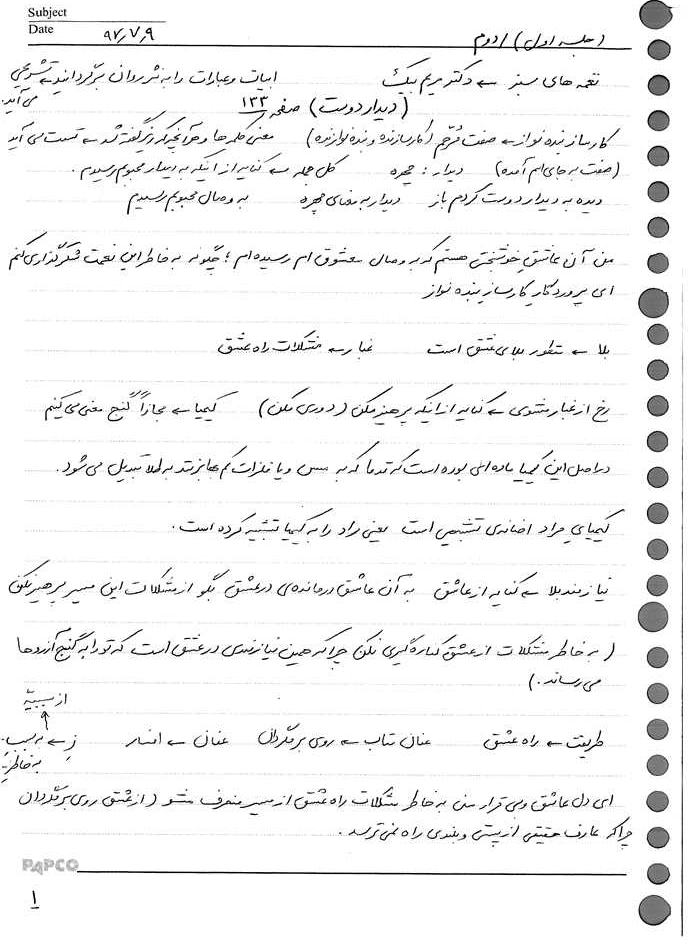 Subject
Date ۹۷,۷,۹
(جلسه اول) / دوم
نغمه های سبز ← دکتر مریم بیک ابیات و عبارات را به نثر روان برگردانید ← تشریحی
می آید.
(دیدار دوست) صفحه ۱۳۳
کارساز بنده نواز ← صفت مُرخّم (کارسازنده و بنده نوازنده) معنی کلمه ها و هر آنچه که زیر گفته شد ← تست می آید
(صفت به جای اسم آمده) دیدار : چهره کل جمله ← کنایه از اینکه به دیدار محبوبم رسیدم.
دیده به دیدار دوست کردم باز دیدار به معنای چهره به وصال محبوبم رسیدم
من آن عاشقِ خوشبختی هستم که به وصال معشوق ام رسیده ام ؛ چگونه به خاطر این نعمت شکرگذاری کنم
ای پروردگارِ کارساز بنده نواز
بلا ← منظور بلای عشق است غبار ← مشکلات راه عشق
رخ از غبار مشوی ← کنایه از اینکه پرهیز مکن (دوری مکن) کیمیا ← مجازاً گنج معنی می کنیم
در اصل این کیمیا ماده ای بوده است که قدما که به مس و یا فلزات کم بها بزنند به طلا تبدیل می شود.
کیمیایِ مراد اضافه ی تشبیهی است یعنی مراد را به کیمیا تشبیه کرده است.
نیازمند بلا ← کنایه از عاشق به آن عاشق درمانده ی در عشق بگو از مشکلات این مسیر پرهیز نکن
( به خاطر مشکلات از عشق کناره گیری نکن چرا که همین نیازمندی در عشق است که تو را به گنج آرزوها
می رساند.)
از سببیّه
طریقت ← راه عشق عنان تاب ← روی برگردان عنان ← افسار زِ ← به سبب،
به خاطر:
ای دل عاشق و بی قرار من به خاطر مشکلات راه عشق از مسیر منحرف مشو (از عشق روی برگردان
چرا که عارف حقیقی از پستی و بلندی راه نمی ترسد.
PAPCO
۱